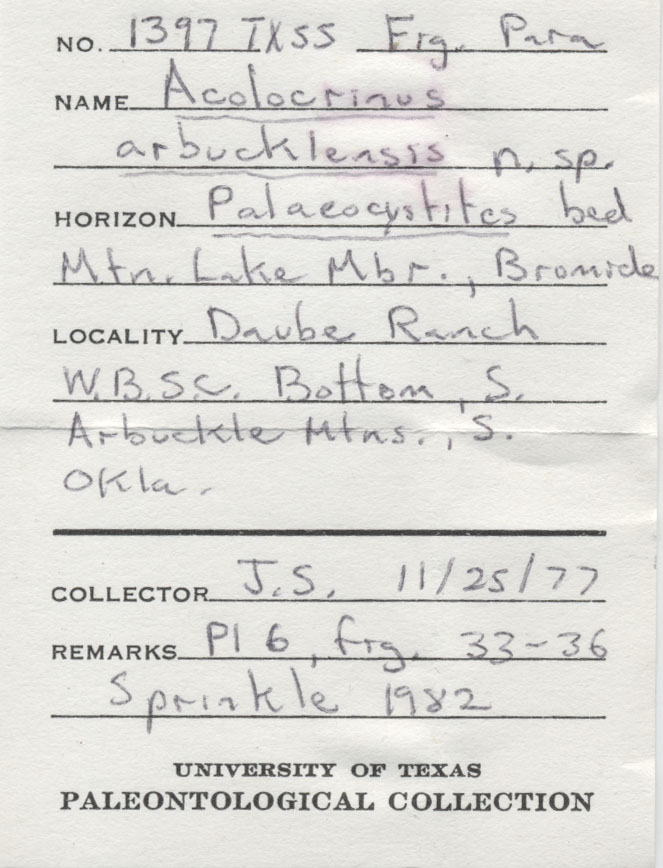 NO. 1397 TX55 Frg. Para
NAME Acolocrinus
arbucklensis n. sp.
HORIZON Palaeocystites bed
Mtn. Lake Mbr., Bromide
LOCALITY Daube Ranch
W.B.S.C. Bottom, S.
Arbuckle Mtns., S.
Okla.
COLLECTOR J.S. 11/25/77
REMARKS Pl 6, frg. 33-36
Sprinkle 1982
UNIVERSITY OF TEXAS
PALEONTOLOGICAL COLLECTION